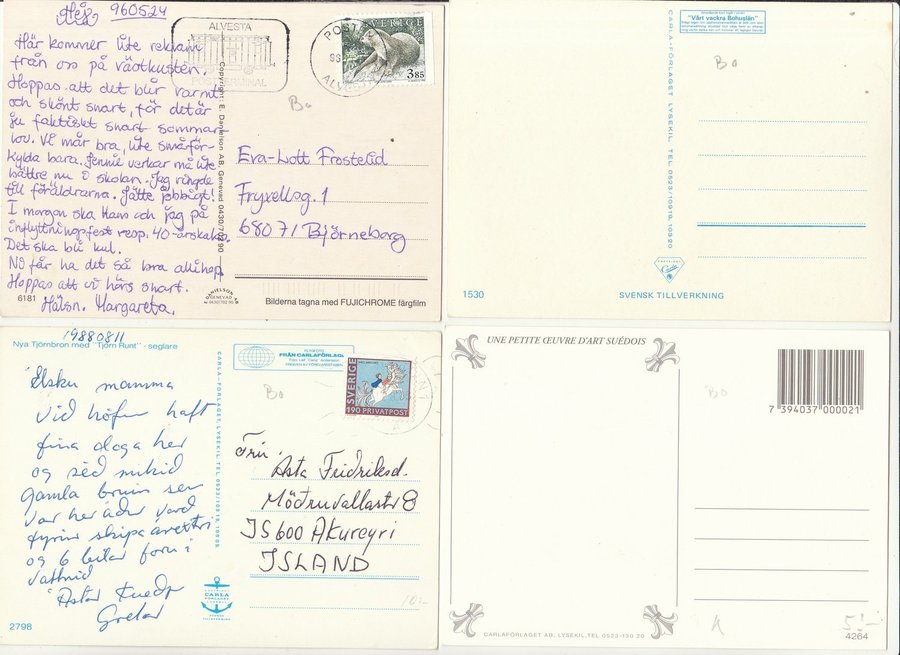 Hej 960524
Här kommer lite reklam
från oss på västkusten.
Hoppas att det blir varmt
och skönt snart, för det är
ju faktiskt snart sommar
lov. Vi mår bra, lite småför-
kylda bara. Jennie verkar må lite
bättre nu i skolan. Jag ringde
till föräldrarna. Jätte jobbigt.
I morgon ska Hans och jag på
inflyttningsfest resp. 40-årskalas.
Det ska bli kul.
Ni får ha det så bra allihop
Hoppas att vi hörs snart.
Hälsn. Margareta.
6181
ALVESTA
POSTTERMINAL
POST
ALVESTA
SVERIGE
3,85
Copyright: E. Danielson AB, Genevad 0430/702 90
Bo
Eva-Lott Frostelid
Fryxellsg. 1
680 71 Björneborg
DANIELSON
GENEVAD
Bilderna tagna med FUJICHROME färgfilm
"Vårt vackra Bohuslän"
CARLA-FÖRLAGET LYSEKIL, TEL 0523/10919, 10520
Bo
Carla
1530
SVENSK TILLVERKNING
19880811
Nya Tjörnbron med "Tjörn Runt" - seglare
Elsku mamma
Við höfum haft
fína daga her
og séð mikið
gamla bruin sem
var her áður varð
fyrir skipa
og 6 bílar foru i
vattnid
Grétar
2798
CARLA-FÖRLAGET, LYSEKIL, TEL.
FLYGFOTO
FRÅN CARLAFÖRLAG
Bo
SVERIGE
190 PRIVATPOST
Frú
Asta Fridriksd.
Möðruvallastr 8
IS 600 Akureyri
ISLAND
CARLA
FÖRLAGET
10:-
UNE PETITE ŒUVRE D'ART SUÉDOIS
Bo
7 394037 000021
CARLAFÖRLAGET AB, LYSEKIL, TEL 0523-190 20
A
5:-
4264